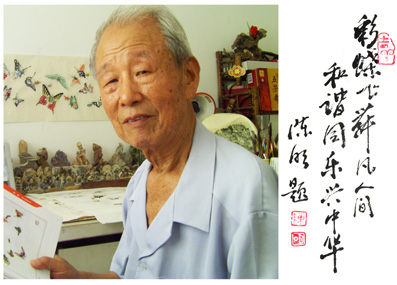 彩蝶飞舞凡人间
和谐同乐兴中华
陈明题